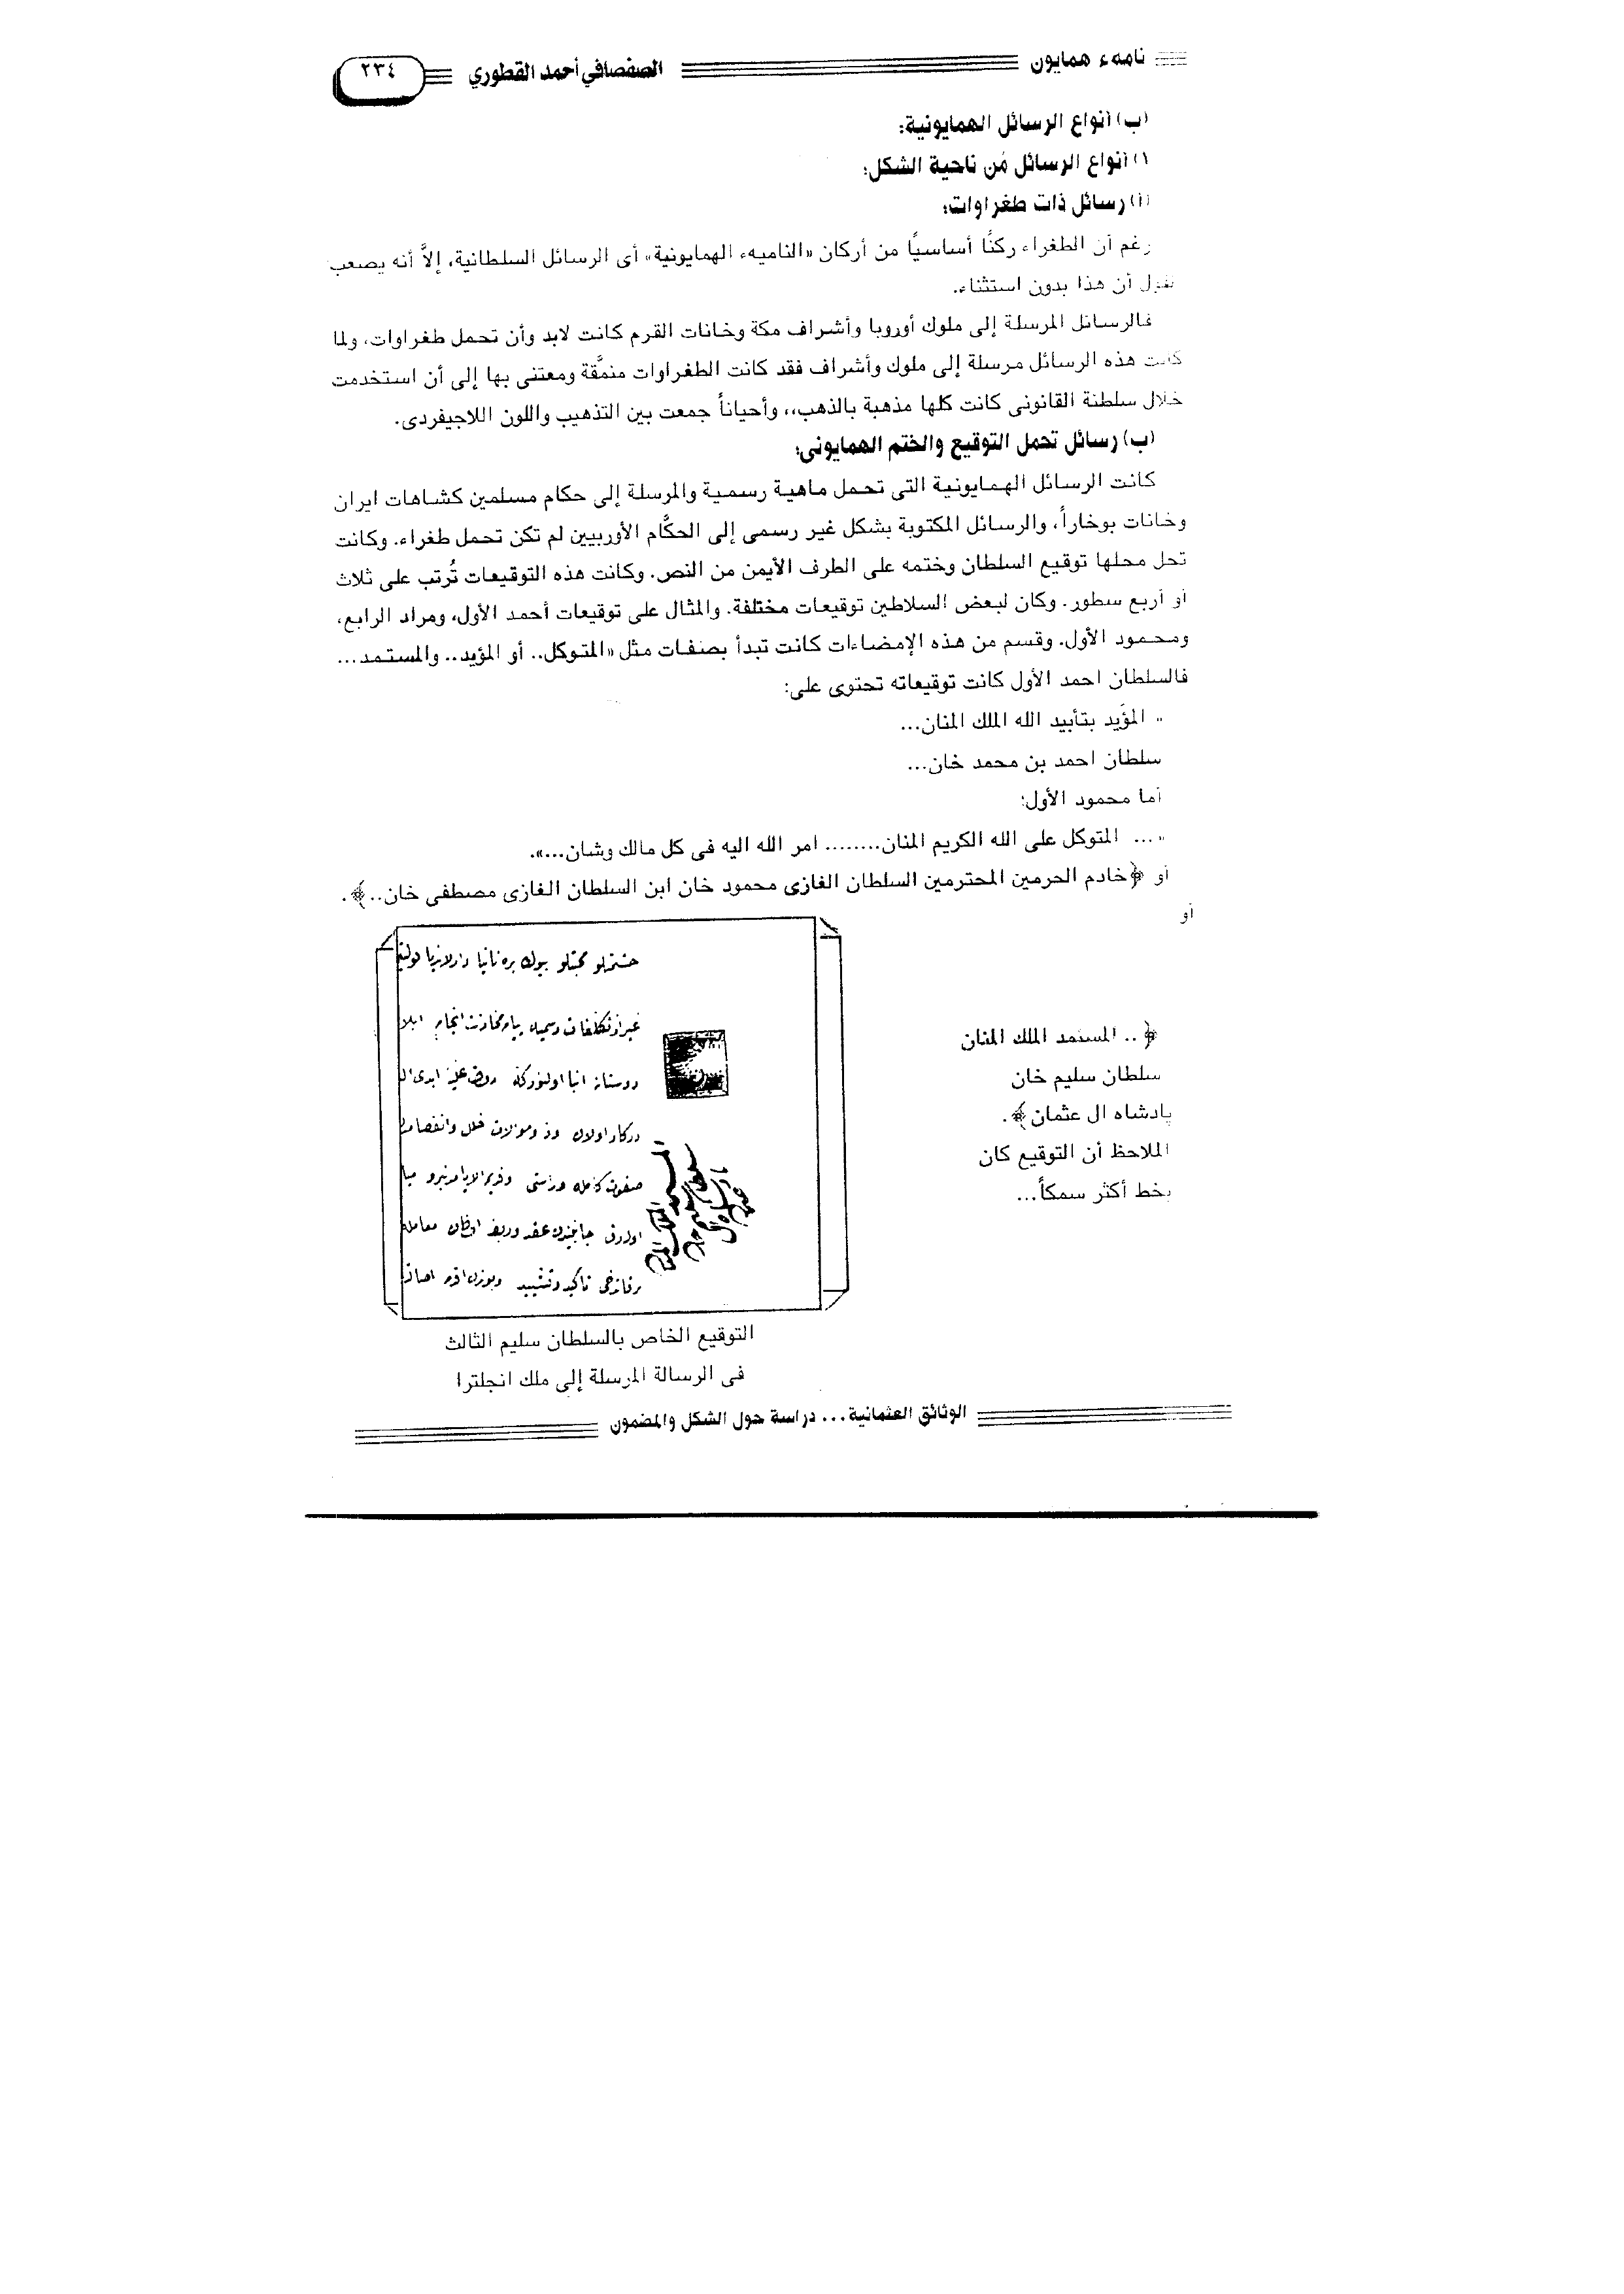 نامهء همايون
الصفصافي أحمد القطوري
٢٣٤
(ب) أنواع الرسائل الهمايونية:
١) أنواع الرسائل من ناحية الشكل:
(أ) رسائل ذات طغراوات:
رغم أن الطغراء ركنًا أساسيًا من أركان «الناميهء الهمايونية» أى الرسائل السلطانية، إلاَّ أنه يصعب
أن هذا بدون استثناء.
فالرسائل المرسلة إلى ملوك أوروبا وأشراف مكة وخانات القرم كانت لابد وأن تحمل طغراوات، ولما
كانت هذه الرسائل مرسلة إلى ملوك وأشراف فقد كانت الطغراوات منمَّقة ومعتنى بها إلى أن استخدمت
خلال سلطنة القانونى كانت كلها مذهبة بالذهب،، وأحياناً جمعت بين التذهيب واللون اللاجيفردى.
(ب) رسائل تحمل التوقيع والختم الهمايونى:
كانت الرسائل الهمايونية التى تحمل ماهية رسمية والمرسلة إلى حكام مسلمين كشاهات ايران
وخانات بوخاراً، والرسائل المكتوبة بشكل غير رسمى إلى الحكَّام الأوربيين لم تكن تحمل طغراء. وكانت
تحل محلها توقيع السلطان وختمه على الطرف الأيمن من النص. وكانت هذه التوقيعات تُرتب على ثلاث
أو أربع سطور. وكان لبعض السلاطين توقيعات مختلفة. والمثال على توقيعات أحمد الأول، ومراد الرابع،
ومحمود الأول. وقسم من هذه الإمضاءات كانت تبدأ بصفات مثل «المتوكل.. أو المؤيد.. والمستمد...
فالسلطان احمد الأول كانت توقيعاته تحتوى على:
" المؤَيد بتأبيد الله الملك المنان...
سلطان احمد بن محمد خان...
أما محمود الأول:
"... المتوكل على الله الكريم المنان........ امر الله اليه فى كل مالك وشان...».
أو ﴿خادم الحرمين المحترمين السلطان الغازى محمود خان ابن السلطان الغازى مصطفى خان..﴾.
أو
﴿.. المستمد الملك المنان
سلطان سليم خان
پادشاه ال عثمان﴾.
الملاحظ أن التوقيع كان
بخط أكثر سمكاً...
التوقيع الخاص بالسلطان سليم الثالث
فى الرسالة المرسلة إلى ملك انجلترا
الوثائق العثمانية... دراسة حول الشكل والمضمون